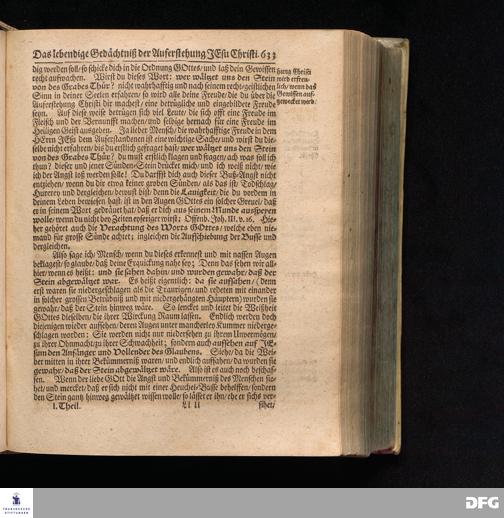 Das lebendige Gedächtniß der Auferstehung JEsu Christi. 633
dig werden soll/ so schicke dich in die Ordnung GOttes/ und laß dein Gewissen
recht aufwachen. Wirst du dieses Wort: wer wälzet uns den Stein
von des Grabes Thür? nicht wahrhafftig und nach seinem recht-geistlichen
Sinn in deiner Seelen erfahren/ so wird alle deine Freude/ die du über die
Auferstehung Christi dir machest/ eine betrügliche und eingebildete Freude
seyn. Auf diese weise betrügen sich viel Leute/ die sich offt eine Freude im
Fleisch und der Vernunfft machen/ und selbige hernach für eine Freude im
Heiligen Geist ausgeben. Ja lieber Mensch/ die wahrhafftige Freude in dem
HErrn JEsu dem Auferstandenen ist eine wichtige Sache/ und wirst du die-
selbe nicht erfahren/ bis du erstlich gefraget hast: wer wälzet uns den Stein
von des Grabes Thür? du must erstlich klagen und sagen/ ach was soll ich
thun? dieser und jener Sünden-Stein drücket mich/ und ich weiß nicht/ wie
ich der Angst loß werden solle! Du darffst dich auch dieser Buß-Angst nicht
entziehen/ wenn du dir etwa keiner groben Sünden/ als das ist/ Todschlag/
Hurerey und dergleichen/ bewust bist; denn die Lauigkeit/ die du vordem in
deinem Leben bewiesen hast/ ist in den Augen GOttes ein solcher Greuel/ daß
er in seinem Wort gedräuet hat/ daß er dich aus seinem Munde ausspeyen
wolle/ wenn du nicht bey Zeiten eyfriger wirst: Offenb. Joh. III. v. 16. Hie-
her gehöret auch die Verachtung des Worts GOttes/ welche eben nie-
mand für grosse Sünde achtet; ingleichen die Aufschiebung der Busse und
dergleichen.
Also sage ich/ Mensch/ wenn du dieses erkennest und mit nassen Augen
beklagest/ so glaube/ daß deine Erquickung nahe sey; Denn das sehen wir all-
hier/ wenn es heißt: und sie sahen dahin/ und wurden gewahr/ daß der
Stein abgewälzet war. Es heißt eigentlich: da sie aufsahen/ (denn
erst waren sie niedergeschlagen als die Traurigen/ und redeten mit einander
in solcher grossen Betrübniß und mit niedergehängten Häuptern) wurden sie
gewahr/ daß der Stein hinweg wäre. So lencket und leitet die Weißheit
GOttes dieselben/ die ihrer Wirckung Raum lassen. Endlich werden doch
diejenigen wieder aufsehen/ deren Augen unter mancherley Kummer niederge-
schlagen worden: Sie werden nicht nur niedersehen zu ihrem Unvermögen/
zu ihrer Ohnmacht/ zu ihrer Schwachheit; sondern auch aufsehen auf JE-
sum den Anfänger und Vollender des Glaubens. Siehe/ da die Wei-
ber mitten in ihrer Bekümmerniß waren/ und endlich aufsahen/ da wurden sie
gewahr/ daß der Stein abgewälzet wäre. Also ist es auch noch beschaf-
fen. Wenn der liebe GOtt die Angst und Bekümmerniß des Menschen sie-
het/ und mercket/ daß er sich nicht mit einer Heuchel-Busse behelffen/ sondern
den Stein gantz hinweg gewälzet wissen wolle/ so lässet er ihn/ ehe er sichs ver-
I. Theil. Ll ll sihet/
hung Christi
wird erfreu-
lich/ wenn das
Gewissen auf-
gewecket wird.
FRANCKESCHE
STIFTUNGEN
DFG